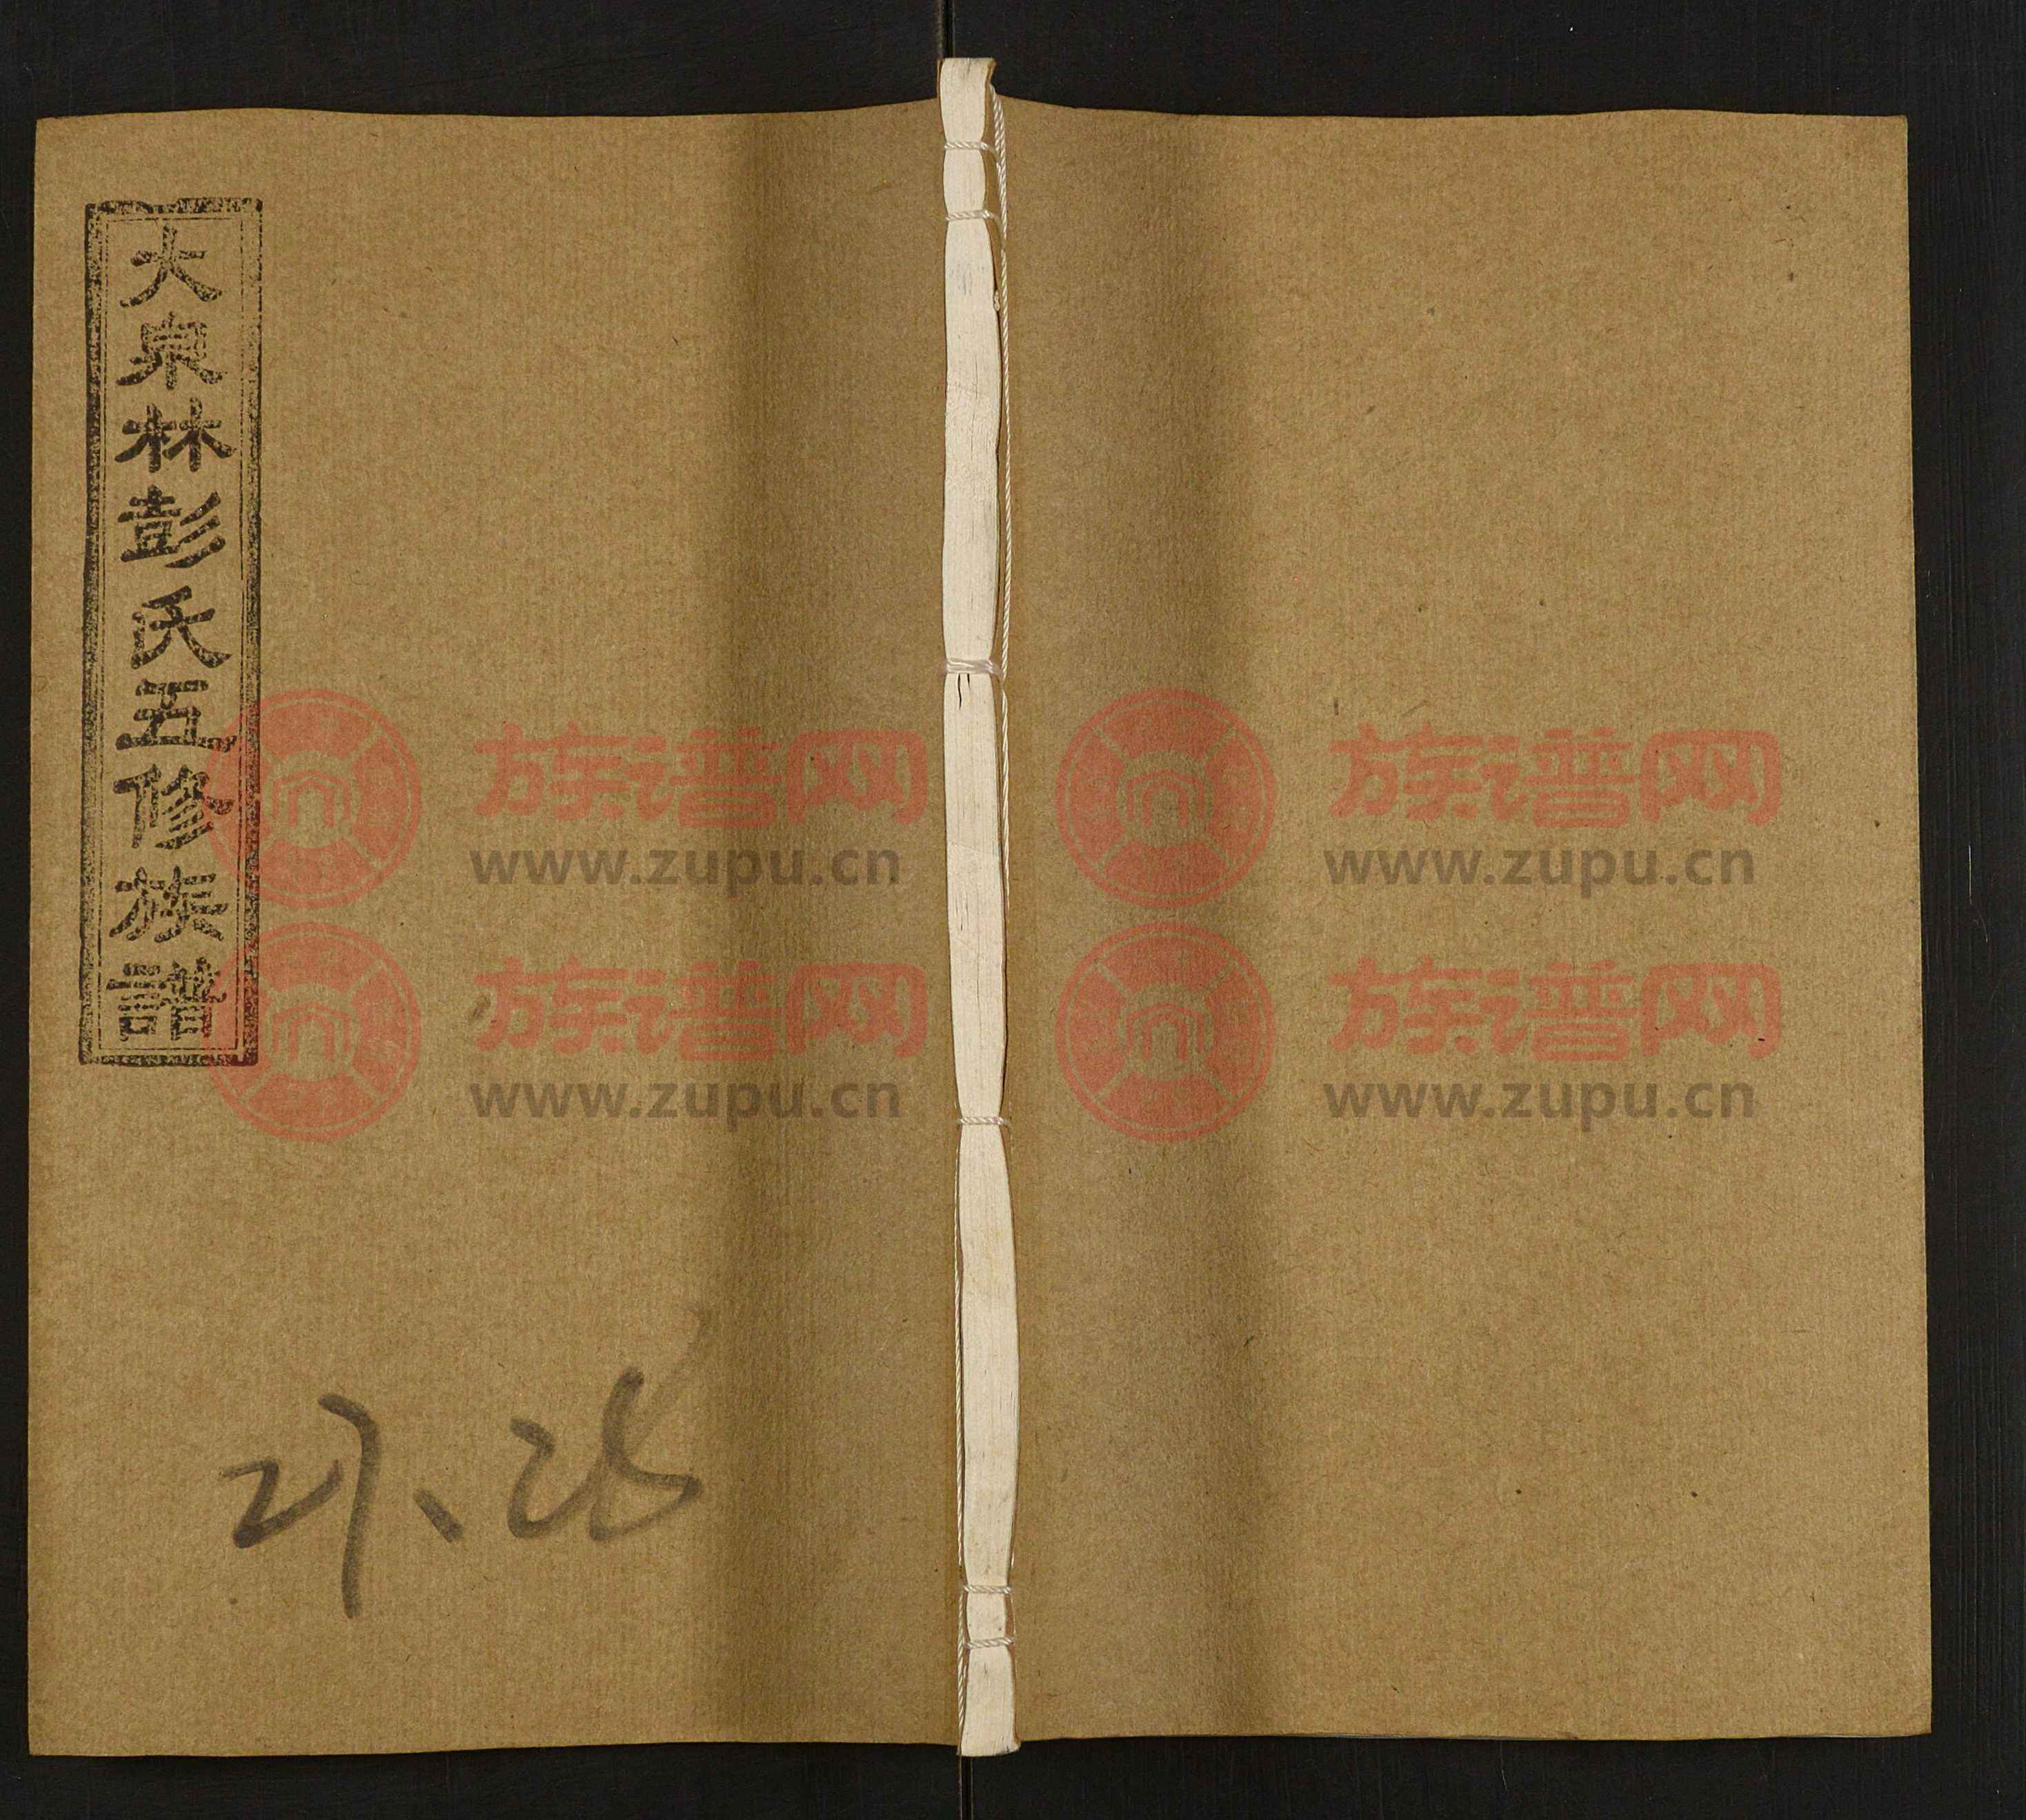 大泉林彭氏五修族譜
族谱网 族谱网
www.zupu.cn www.zupu.cn
族谱网 族谱网
www.zupu.cn www.zupu.cn
27、28